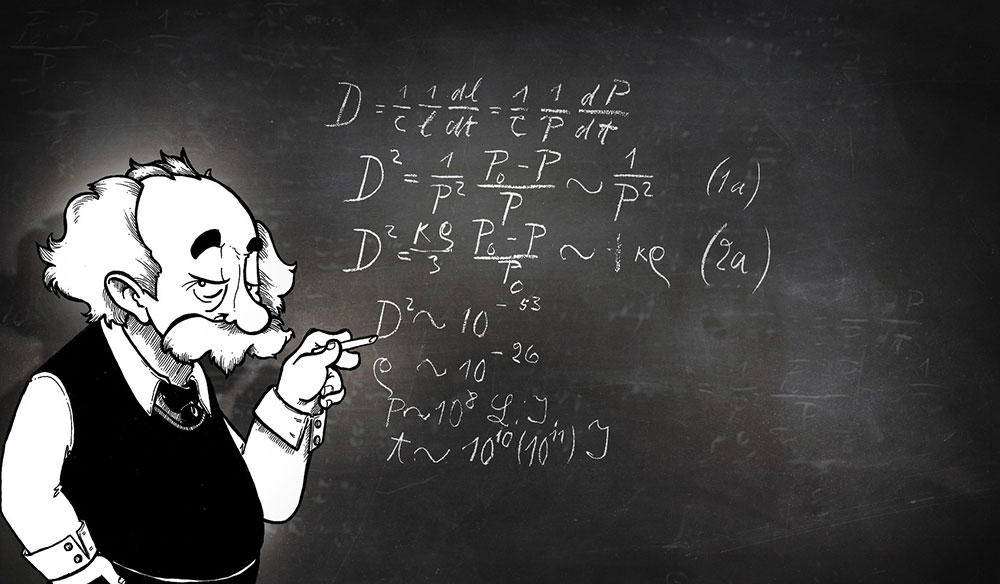 D = 1/c 1/ℓ dℓ/dt = 1/c 1/P dP/dt
D² = 1/P² (P₀-P)/P ~ 1/P² (1a)
D² = κϱ/3 (P₀-P)/P₀ ~ κϱ (2a)
D² ~ 10⁻⁵³
ϱ ~ 10⁻²⁶
P ~ 10⁸ L.J.
t ~ 10¹⁰(10¹¹) J